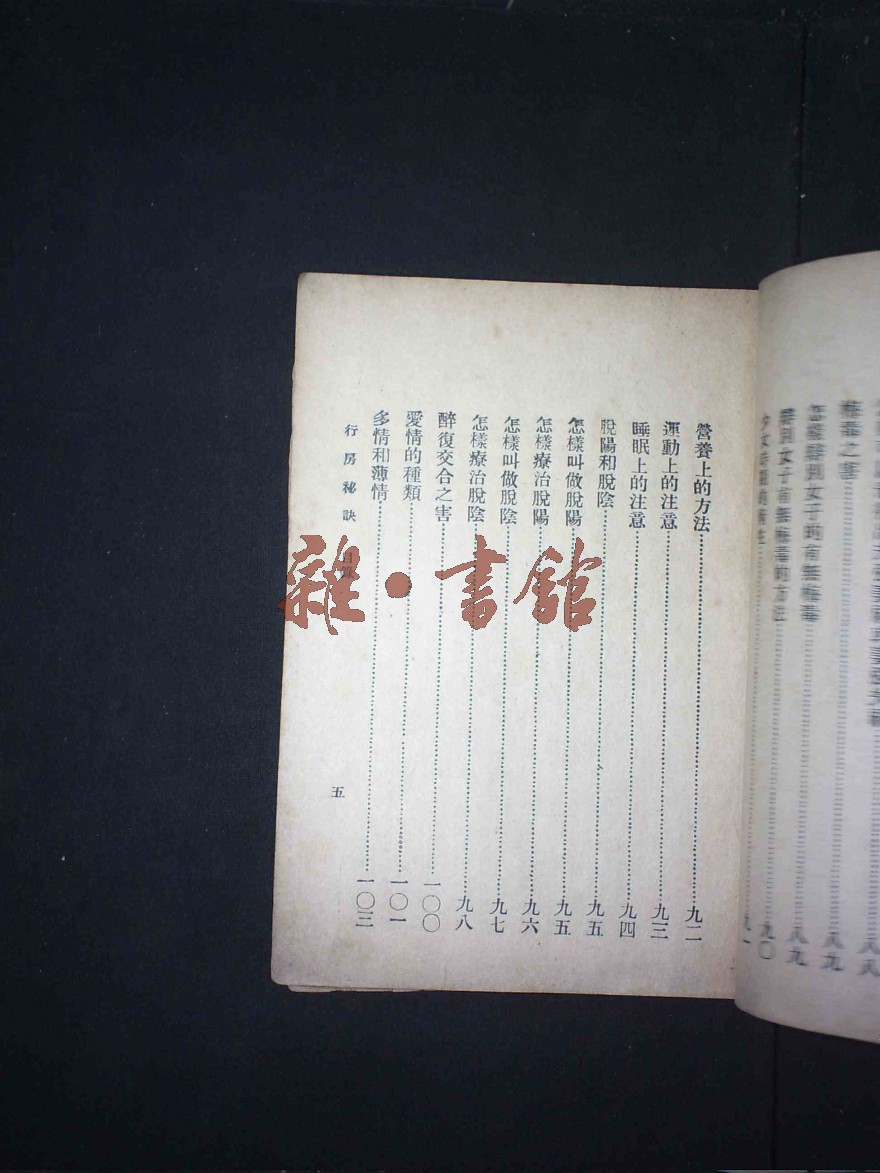 梅毒之害⋯⋯八九
怎樣辯別女子的有無梅毒⋯⋯八九
辯別女子有無梅毒的方法⋯⋯九〇
少女時期的衛生⋯⋯九一
營養上的方法⋯⋯九二
運動上的注意⋯⋯九三
睡眠上的注意⋯⋯九四
脫陽和脫陰⋯⋯九五
怎樣叫做脫陽⋯⋯九五
怎樣療治脫陽⋯⋯九六
怎樣叫做脫陰⋯⋯九七
怎樣療治脫陰⋯⋯九八
醉復交合之害⋯⋯一〇〇
愛情的種類⋯⋯一〇一
多情和薄情⋯⋯一〇三
行房秘訣 目錄 五
雜·書館